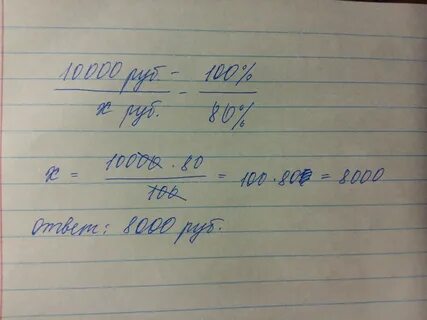 10000 руб. - 100%
x руб. - 80%
x = 10000 · 80 / 100 = 100 · 80 = 8000
ответ: 8000 руб.